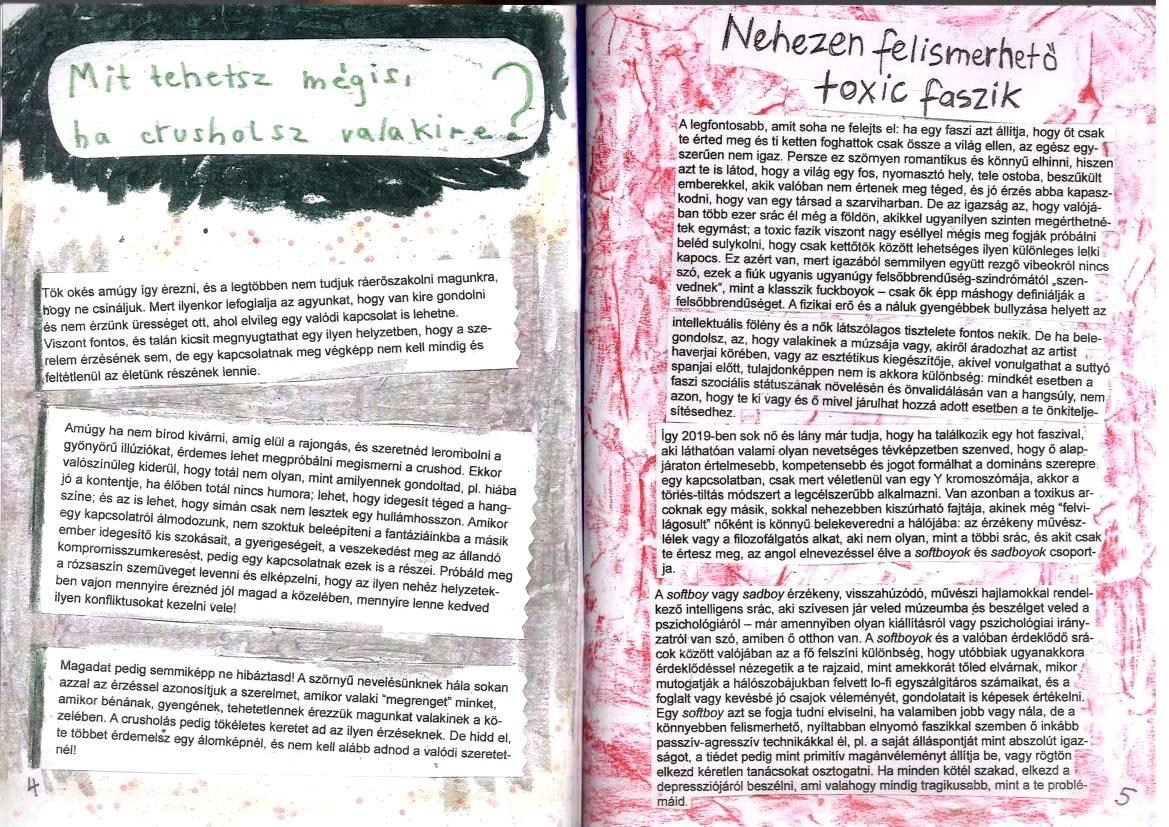 Mit tehetsz mégis,
ha crusholsz valakire?
Tök okés amúgy így érezni, és a legtöbben nem tudjuk ráerőszakolni magunkra,
hogy ne csináljuk. Mert ilyenkor lefoglalja az agyunkat, hogy van kire gondolni
és nem érzünk ürességet ott, ahol elvileg egy valódi kapcsolat is lehetne.
Viszont fontos, és talán kicsit megnyugtathat egy ilyen helyzetben, hogy a sze-
relem érzésének sem, de egy kapcsolatnak meg végképp nem kell mindig és
feltétlenül az életünk részének lennie.
Amúgy ha nem bírod kivárni, amíg elül a rajongás, és szeretnéd lerombolni a
gyönyörű illúziókat, érdemes lehet megpróbálni megismerni a crushod. Ekkor
valószínűleg kiderül, hogy totál nem olyan, mint amilyennek gondoltad, pl. hiába
jó a kontentje, ha élőben totál nincs humora; lehet, hogy idegesít téged a hang-
színe; és az is lehet, hogy simán csak nem lesztek egy hullámhosszon. Amikor
egy kapcsolatról álmodozunk, nem szoktuk beleépíteni a fantáziáinkba a másik
ember idegesítő kis szokásait, a gyengeségeit, a veszekedést meg az állandó
kompromisszumkeresést, pedig egy kapcsolatnak ezek is a részei. Próbáld meg
a rózsaszín szemüveget levenni és elképzelni, hogy az ilyen nehéz helyzetek-
ben vajon mennyire éreznéd jól magad a közelében, mennyire lenne kedved
ilyen konfliktusokat kezelni vele!
Magadat pedig semmiképp ne hibáztasd! A szörnyű nevelésünknek hála sokan
azzal az érzéssel azonosítjuk a szerelmet, amikor valaki "megrenget" minket,
amikor bénának, gyengének, tehetetlennek érezzük magunkat valakinek a kö-
zelében. A crusholás pedig tökéletes keretet ad az ilyen érzéseknek. De hidd el,
te többet érdemelsz egy álomképnél, és nem kell alább adnod a valódi szeretet-
nél!
4
Nehezen felismerhető
toxic faszik
A legfontosabb, amit soha ne felejts el: ha egy faszi azt állítja, hogy őt csak
te érted meg és ti ketten foghattok csak össze a világ ellen, az egész egy-
szerűen nem igaz. Persze ez szörnyen romantikus és könnyű elhinni, hiszen
azt te is látod, hogy a világ egy fos, nyomasztó hely, tele ostoba, beszűkült
emberekkel, akik valóban nem értenek meg téged, és jó érzés abba kapasz-
kodni, hogy van egy társad a szarviharban. De az igazság az, hogy valójá-
ban több ezer srác él még a földön, akikkel ugyanilyen szinten megérthetné-
tek egymást; a toxic fazik viszont nagy eséllyel mégis meg fogják próbálni
beléd sulykolni, hogy csak kettőtök között lehetséges ilyen különleges lelki
kapocs. Ez azért van, mert igazából semmilyen együtt rezgő vibeokról nincs
szó, ezek a fiúk ugyanis ugyanúgy felsőbbrendűség-szindrómától „szen-
vednek", mint a klasszik fuckboyok – csak ők épp máshogy definiálják a
felsőbbrendűséget. A fizikai erő és a náluk gyengébbek bullyzása helyett az
intellektuális fölény és a nők látszólagos tisztelete fontos nekik. De ha bele-
gondolsz, az, hogy valakinek a múzsája vagy, akiről áradozhat az artist
haverjai körében, vagy az esztétikus kiegészítője, akivel vonulgathat a suttyó
spanjai előtt, tulajdonképpen nem is akkora különbség: mindkét esetben a
faszi szociális státuszának növelésén és önvalidálásán van a hangsúly, nem
azon, hogy te ki vagy és ő mivel járulhat hozzá adott esetben a te önkitelje-
sítésedhez.
Így 2019-ben sok nő és lány már tudja, hogy ha találkozik egy hot faszival,
aki láthatóan valami olyan nevetséges tévképzetben szenved, hogy ő alap-
járaton értelmesebb, kompetensebb és jogot formálhat a domináns szerepre
egy kapcsolatban, csak mert véletlenül van egy Y kromoszómája, akkor a
törlés-tiltás módszert a legcélszerűbb alkalmazni. Van azonban a toxikus ar-
coknak egy másik, sokkal nehezebben kiszúrható fajtája, akinek még "felvi-
lágosult" nőként is könnyű belekeveredni a hálójába: az érzékeny művész-
lélek vagy a filozofálgatós alkat, aki nem olyan, mint a többi srác, és akit csak
te értesz meg, az angol elnevezéssel élve a softboyok és sadboyok csoport-
ja.
A softboy vagy sadboy érzékeny, visszahúzódó, művészi hajlamokkal rendel-
kező intelligens srác, aki szívesen jár veled múzeumba és beszélget veled a
pszichológiáról – már amennyiben olyan kiállításról vagy pszichológiai irány-
zatról van szó, amiben ő otthon van. A softboyok és a valóban érdeklődő srá-
cok között valójában az a fő felszíni különbség, hogy utóbbiak ugyanakkora
érdeklődéssel nézegetik a te rajzaid, mint amekkorát tőled elvárnak, mikor
mutogatják a hálószobájukban felvett lo-fi egyszálgitáros számaikat, és a
foglalt vagy kevésbé jó csajok véleményét, gondolatait is képesek értékelni.
Egy softboy azt se fogja tudni elviselni, ha valamiben jobb vagy nála, de a
könnyebben felismerhető, nyíltabban elnyomó faszikkal szemben ő inkább
passzív-agresszív technikákkal él, pl. a saját álláspontját mint abszolút igaz-
ságot, a tiédet pedig mint primitív magánvéleményt állítja be, vagy rögtön
elkezd kéretlen tanácsokat osztogatni. Ha minden kötél szakad, elkezd a
depressziójáról beszélni, ami valahogy mindig tragikusabb, mint a te problé-
máid.
5